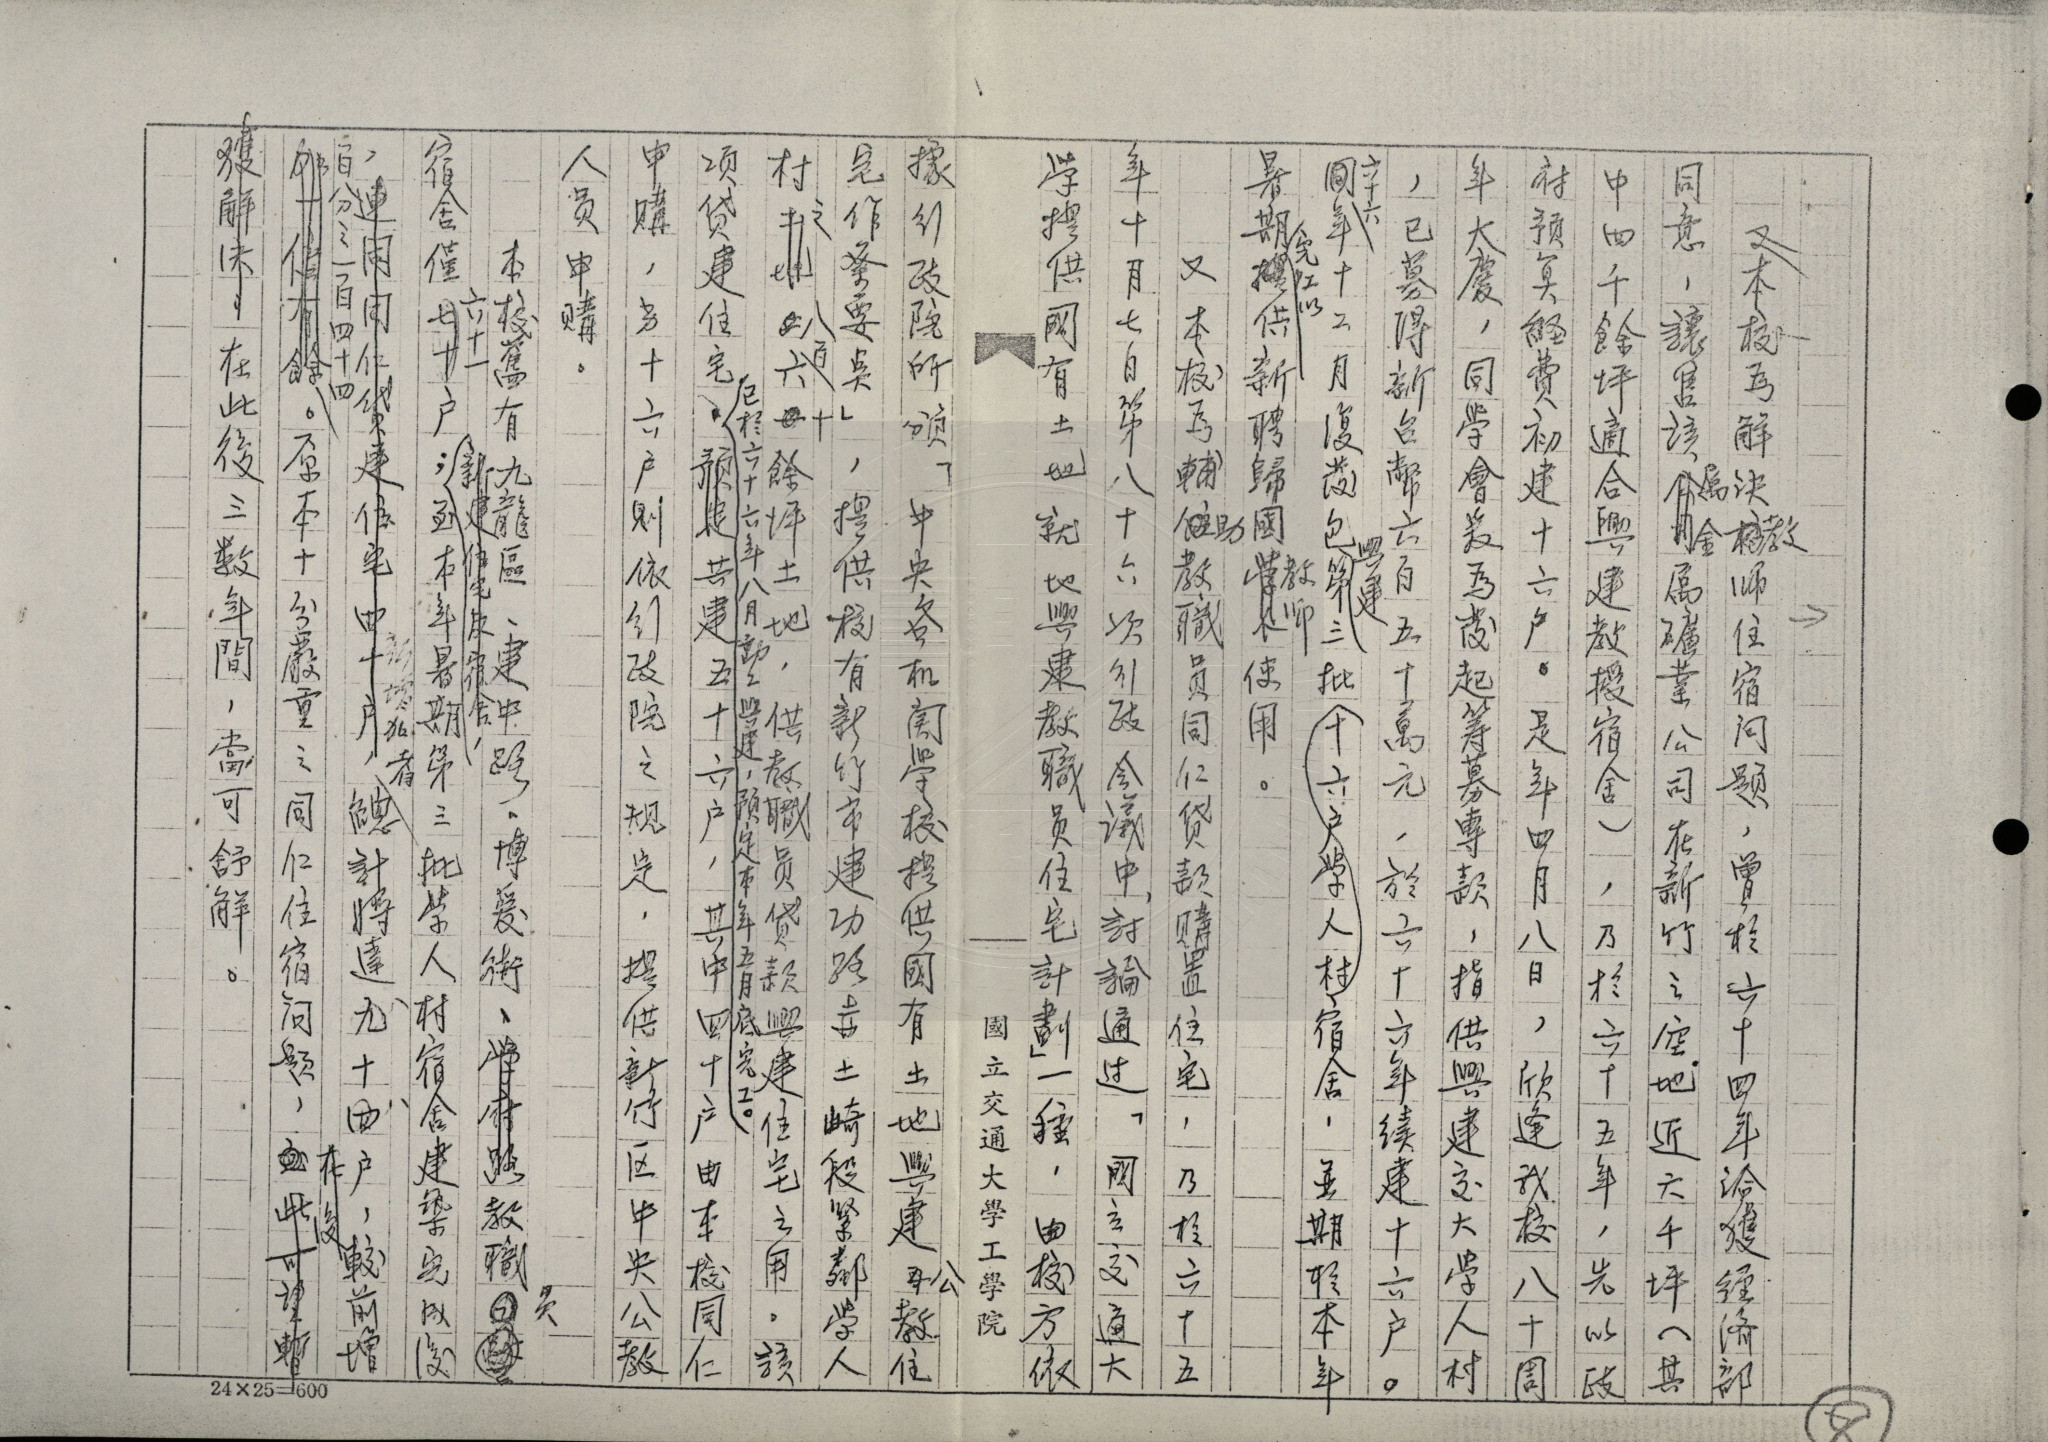 又本校為解決教師住宿問題，曾於六十四年洽獲經濟部
同意，讓售該屬金屬礦業公司在新竹之空地近六千坪（其
中四千餘坪適合興建教授宿舍），乃於六十五年，先以政
府預算經費初建十六户。是年四月八日，欣逢我校八十周
年大慶，同學會發為發起籌募專款，指供興建交大學人村
，已募得新台幣六百五十萬元，於六十六年續建十六户。
六十六年十二月復發包興建第三批（十六户學人村）宿舍，並期於本年
暑期完工以供新聘歸國教師使用。
又本校為輔助教職員同仁貸款購置住宅，乃於六十五
年十月七日第八十六次行政會議中，討論通过「國立交通大
學提供國有土地就地興建教職員住宅計劃」一種，由校方依
國立交通大學工學院
據行政院所頒「中央各机関學校提供國有土地興建公教住
宅作業要點」，提供校有新竹市建功路赤土崎段緊鄰學人
村之八百六十餘坪土地，供教職員貸款興建住宅之用。該
項貸建住宅，已於六十六年八月動工興建，預定本年五月底完工。
共建五十六户，其中四十户由本校同仁
申購，另十六户則依行政院之規定，提供新竹区中央公教
人員申購。
本校舊有九龍區、建中路、博愛街、學府路教職員
宿舍僅六十一户；
新建住宅及宿舍，
迄本年暑期第三批學人村宿舍建築完成後
，連同同仁貸建住宅四十户，新增加者總計將達九十四户，較前增
百分之一百四十四
加一倍有餘。原本十分嚴重之同仁住宿問題，至此可望暫
獲解決，在此後三數年間，當可舒解。
24×25=600